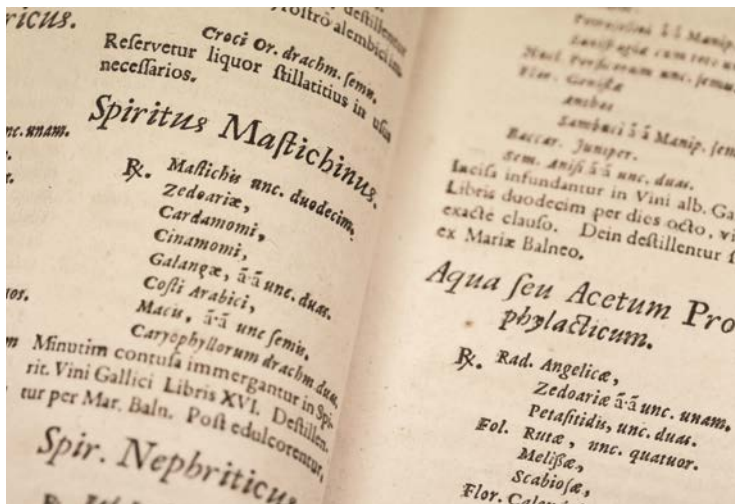 ricus.
nostro alembici
destillentur
Croci Or. drachm. semis.
Reservetur liquor stillatitius in usus
necessarios.
Spiritus Mastichinus.
nc. unam.
℞. Mastichis unc. duodecim.
Zedoariæ,
Cardamomi,
Cinamomi,
Galangæ, ā·ā unc. duas.
Costi Arabici,
Macis, ā·ā unc semis.
Caryophyllorum drachm. duas.
Minutim contusa immergantur in Spi-
rit. Vini Gallici Libris XVI. Destillen-
tur per Mar. Baln. Post edulcorentur.
Spir. Nephriticus
℞.
Manip.
cum toto
unc. semis.
Flor. Genistæ
Sambuci ā ā Manip. sem
Baccar. Juniper.
Sem. Anisi ā·ā unc. duas.
Incisa infundantur in Vini alb. Ga
Libris duodecim per dies octo, vi
exacte clauso. Dein destillentur
ex Mariæ Balneo.
Aqua seu Acetum Pro
phylacticum.
℞. Rad. Angelicæ,
Zedoariæ ā·ā unc. unam.
Petasitidis, unc. duas.
Fol. Rutæ, unc. quatuor.
Melissæ,
Scabiosæ,
Flor. Calend